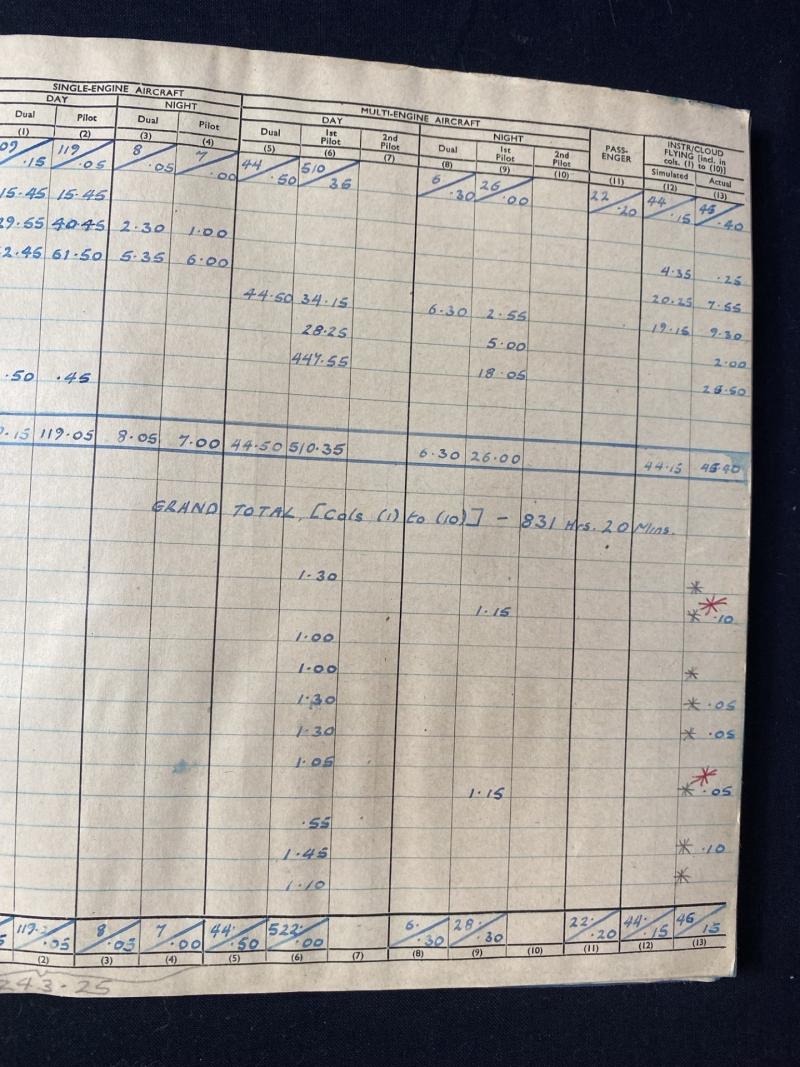 SINGLE-ENGINE AIRCRAFT MULTI-ENGINE AIRCRAFT PASS-ENGER INSTR/CLOUD FLYING [Incl. in cols. (1) to (10)]
DAY NIGHT DAY NIGHT
Dual Pilot Dual Pilot Dual 1st Pilot 2nd Pilot Dual 1st Pilot 2nd Pilot Simulated Actual
(1) (2) (3) (4) (5) (6) (7) (8) (9) (10) (11) (12) (13)
09 .15 119 .05 8 .05 7 .00 44 .50 510 35 6 .30 26 .00 22 .20 44 .15 .40
15.45 15.45
29.55 40.45 2.30 1.00 4.35 .25
2.45 61.50 5.35 6.00 20.25 7.55
44.50 34.15 6.30 2.55 19.15 9.30
28.25 5.00 2.00
447.55 18.05
.50 .45
9.15 119.05 8.05 7.00 44.50 510.35 6.30 26.00 44.15
GRAND TOTAL, [Cols (1) to (10)] - 831 Hrs. 20 Mins.
1.30 *
1.15 * * .10
1.00
1.00 *
1.30 * .05
1.30 * .05
1.05
1.15 * * .05
.55
1.45 * .10
1.10 *
5 .05 8 .05 7 .00 44. .50 522. .00 6. .30 28. .30 22. .20 44. .15 46 15
(2) (3) (4) (5) (6) (7) (8) (9) (10) (11) (12) (13)
243.25